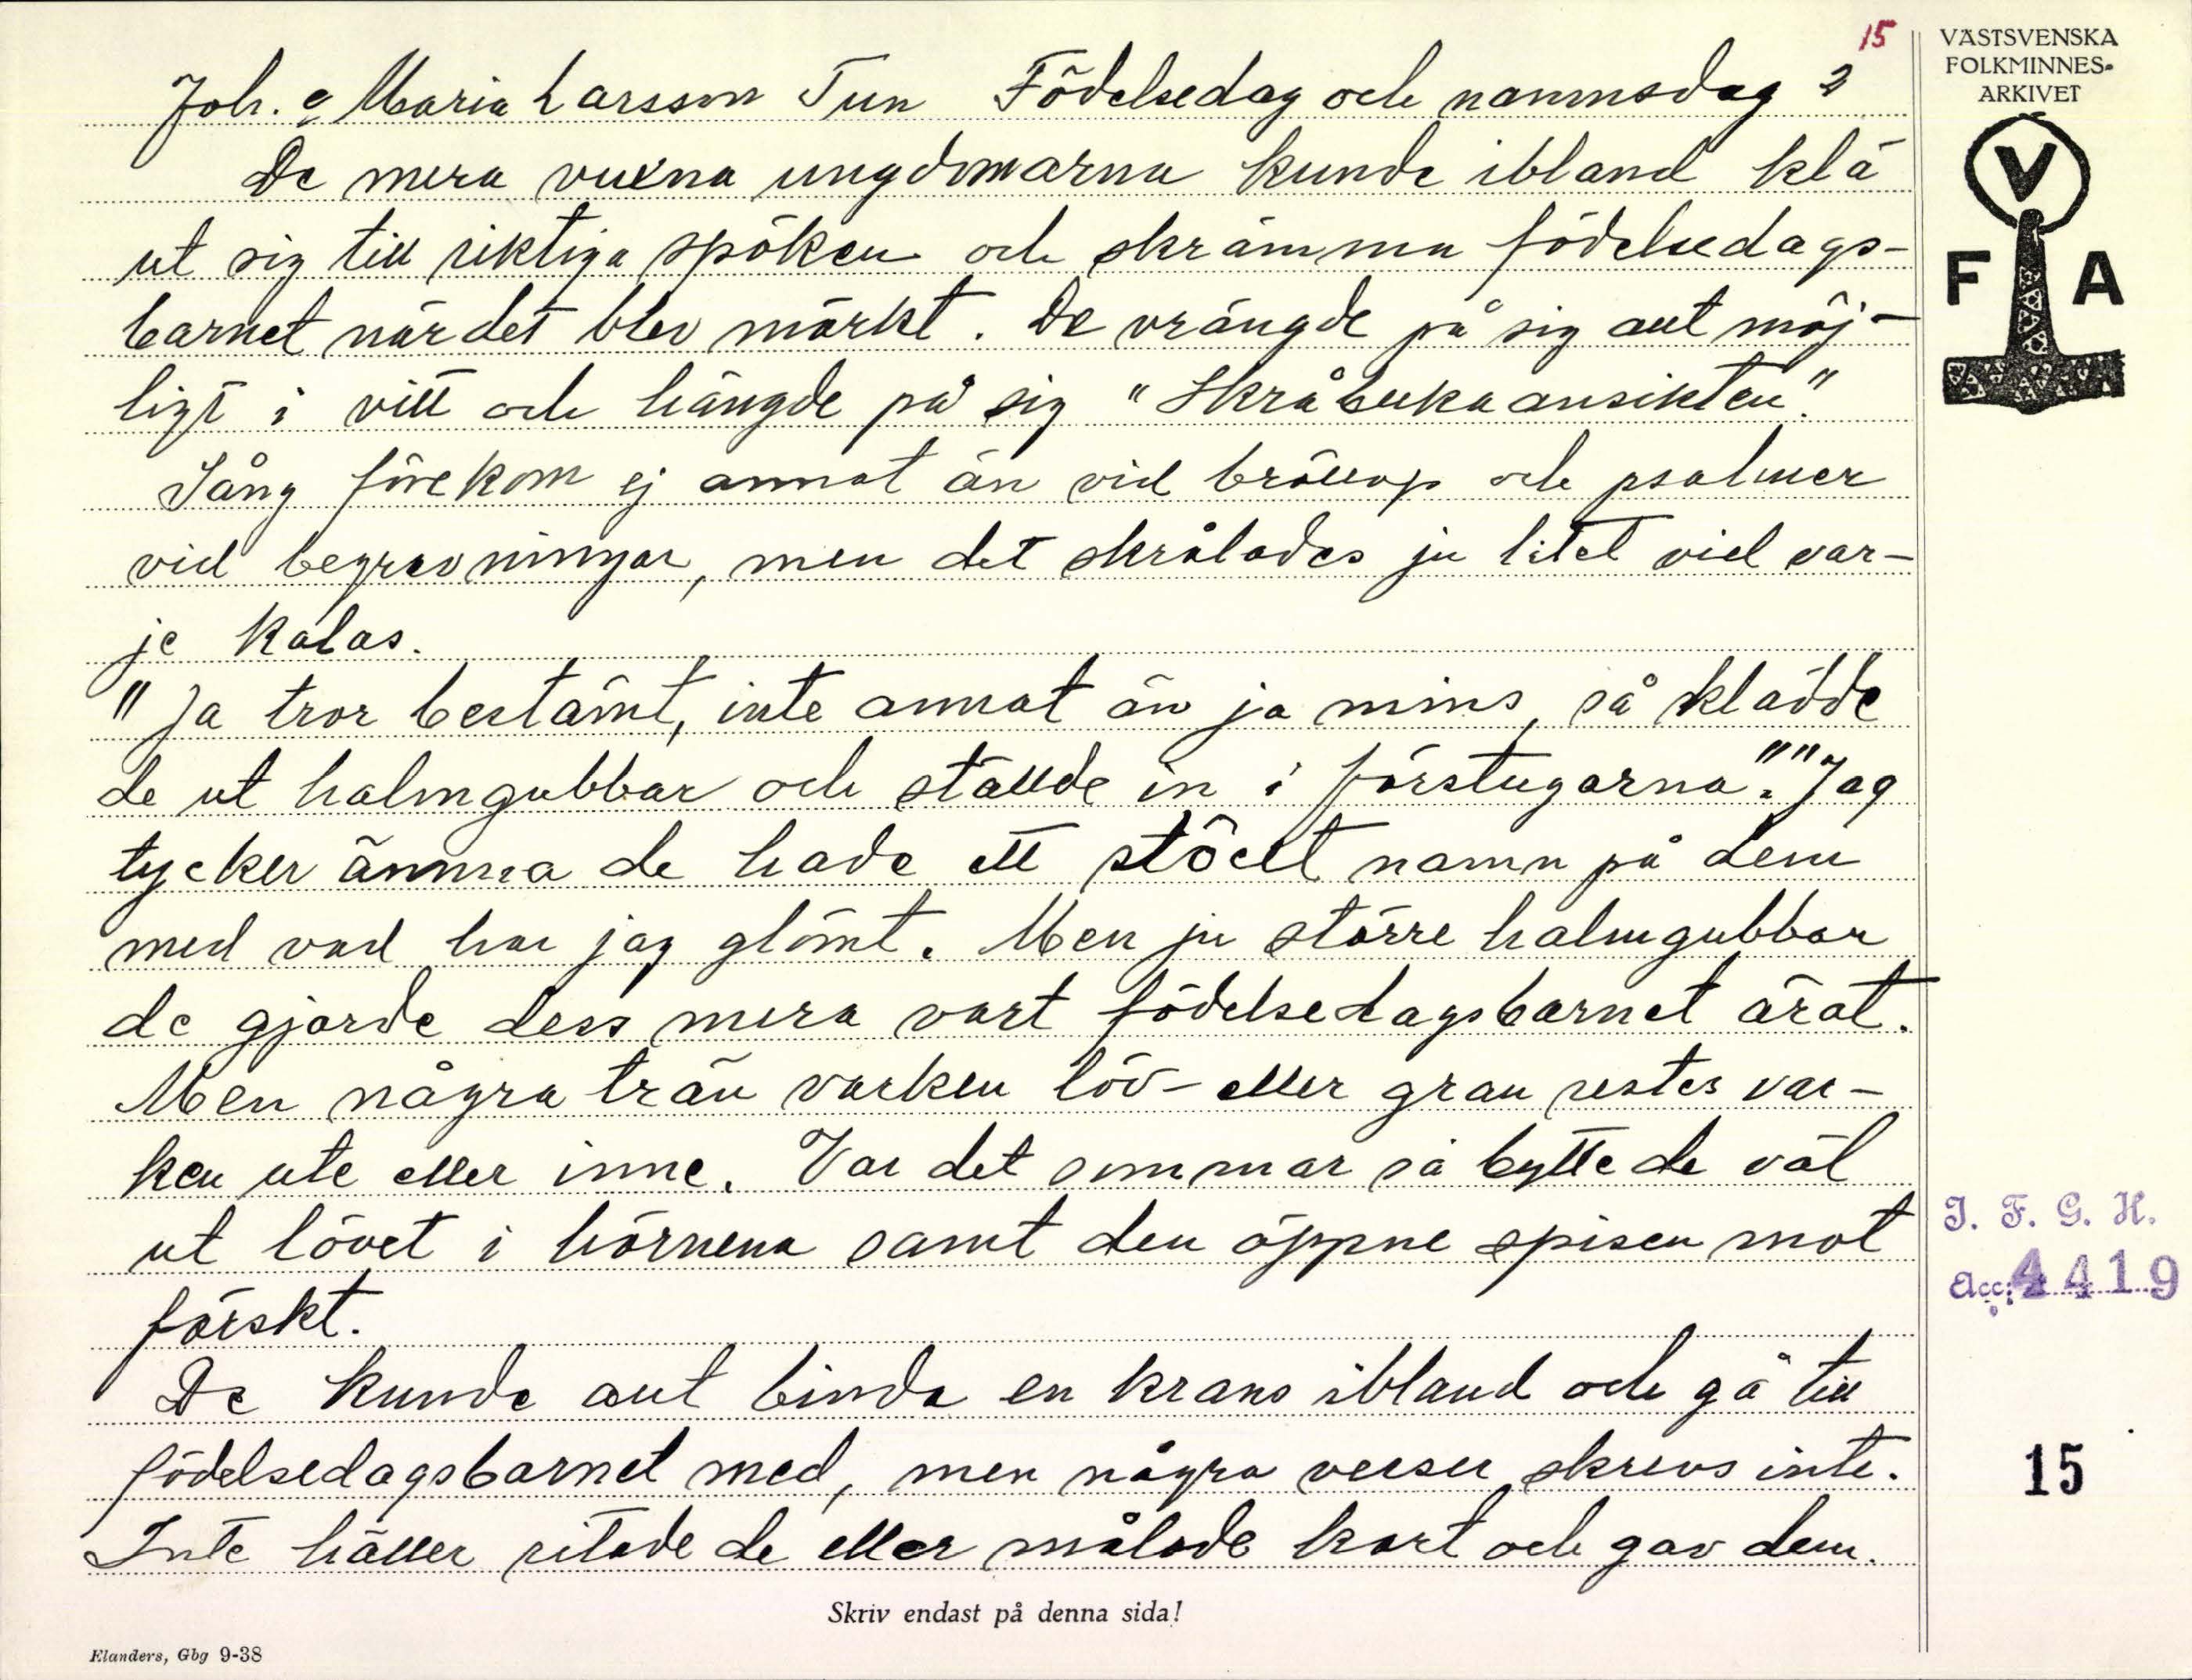 15
Joh. o Maria Larsson Tun Födelsedag och namnsdag 2
De mera vuxna ungdomarna kunde ibland klä
ut sig till riktiga spöken och skrämma födelsedags-
barnet när det blev mörkt. De vrängde på sig allt möj-
ligt i vitt och hängde på sig "Skråbukaansikten".
Sång förekom ej annat än vid bröllop och psalmer
vid begravningar, men det skrålades ju litet vid var-
je kalas.
"Ja tror bestämt, inte annat än ja mins, så klädde
de ut halmgubbar och ställde in i förstugarna". "Jag
tycker ämma de hade ett namn på dem
med vad har jag glömt. Men ju större halmgubbar
de gjorde dess mera vart födelsedagsbarnet ärat.
Men några trän varken löv- eller gran restes var-
ken ute eller inne. Var det sommar så bytte de väl
ut lövet i hörnena samt den öppne spisen mot
förskt.
De kunde allt binda en krans ibland och gå till
födelsedagsbarnet med, men några verser skrevs inte.
Inte häller ritade de eller målade kort och gav dem.
Skriv endast på denna sida!
Elanders, Gbg 9-38
VÄSTSVENSKA
FOLKMINNES-
ARKIVET
V
F A
I. F. G. H.
Acc: 4419
15